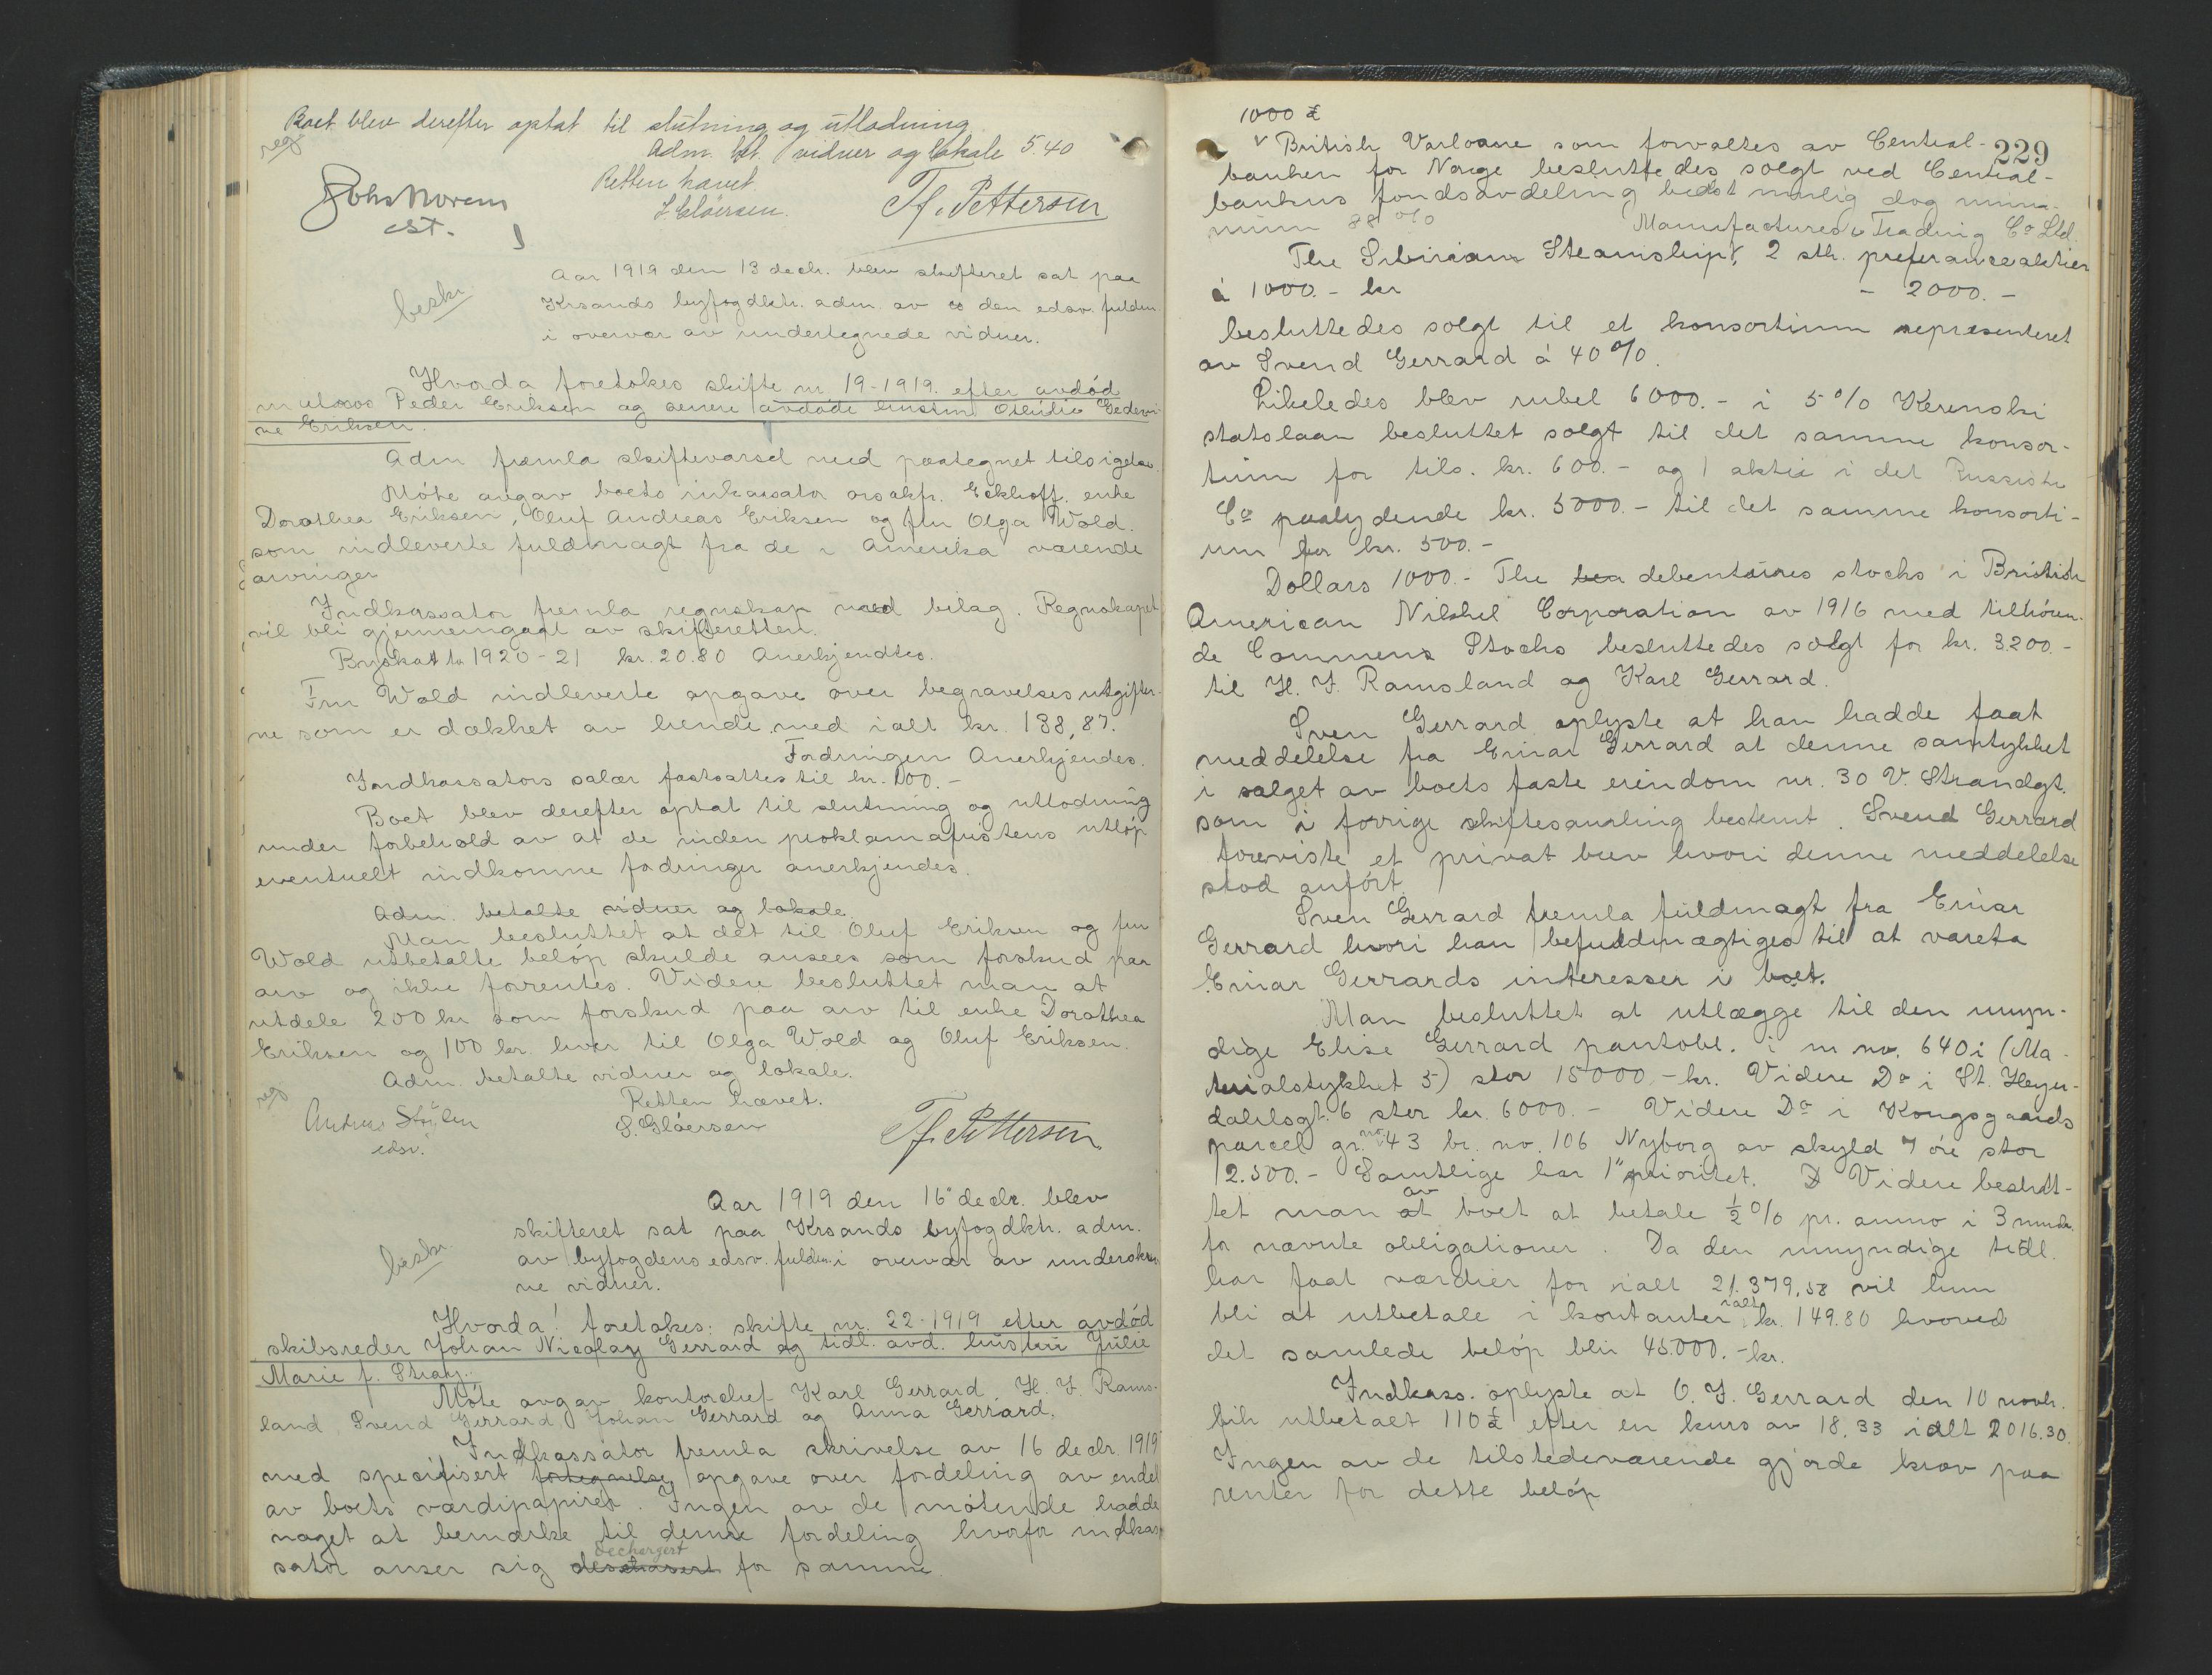 Boet blev derefter optat til slutning og utlodning
reg
Adm. bet. vidner og lokale 5 40
Retten hævet.
Johs Norem
est.
S. Gloersen.
Th. Pettersen
beskr
Aar 1919 den 13 decbr. blev skifteret sat paa
Krsands byfogdktr. adm. av den edsv. fuldm
i overvær av undertegnede vidner.
Hvorda foretokes skifte nr. 19-1919. efter avdød
Peder Eriksen og senere avdøde hustru Otilie Gedevi-
ne Eriksen.
Adm fremla skiftevarsel med paategnet tilsigelse.
Møte avgav boets inkassator orsakfr. Eckhoff, enke
Dorothea Eriksen, Oluf Andreas Eriksen og fru Olga Wold.
som indleverte fuldmagt fra de i Amerika værende
arvinger
Indkassator fremla regnskap med bilag. Regnskapet
vil bli gjennemgaat av skifteretten.
Byskat for 1920-21 kr. 20.80 Anerkjendtes.
Fru Wold indleverte opgave over begravelsesutgifter-
ne som er dækket av hende med ialt kr. 138,87.
Fodringen Anerkjendes.
Indkassators salær fastsattes til kr. 100.-
Boet blev derefter optat til slutning og utlodning
under forbehold av at de inden proklamafristens utløp
eventuelt indkomne fodringer anerkjendes.
Adm. betalte vidner og lokale.
Man besluttet at det til Oluf Eriksen og fru
Wold utbetalte beløp skulde ansees som forskud paa
arv og ikke forrentes. Videre besluttet man at
utdele 200 kr som forskud paa arv til enke Dorothea
Eriksen og 100 kr. hver til Olga Wold og Oluf Eriksen.
Adm. betalte vidner og lokale.
reg
Retten hævet.
Andreas Stølen
edsv.
S. Gloersen
Th. Pettersen
Aar 1919 den 16" decbr. blev
beskr
skifteret sat paa Krsands byfogdktr. adm.
av byfogdens edsv. fuldm. i overvær av underskrev
ne vidner.
Hvorda! foretokes: skifte nr. 22-1919 efter avdød
skibsreder Johan Nicolay Gerrard og tidl. avd. hustru Julie
Marie f. Stray.
Møte avgav kontorchef Karl Gerrard, H. J. Rams-
land, Svend Gerrard, Johan Gerrard og Anna Gerrard.
Indkassator fremla skrivelse av 16 decbr. 1919
med specifisert fortegnelse opgave over fordeling av endel
av boets værdipapirer. Ingen av de møtende hadde
noget at bemerke til denne fordeling hvorfor indkas-
dechargert
sator anser sig for samme.
229
1000 £
British Warloane som forvaltes av Central-
banken for Norge besluttedes solgt ved Central-
bankens fondsavdeling bedst mulig dog mini-
mum 88 %
Manufactures & Trading Co Ltd.
The Sibirian Steamship, 2 stk. preferanceaktier
à 1000.- kr - 2000.-
besluttedes solgt til et konsortium representeret
av Svend Gerrard á 40 %.
Likeledes blev rubel 6000.- i 5 % Kerenski
statslaan besluttet solgt til det samme konsor-
tium for tils. kr. 600.- og 1 aktie i det Russiske
Co paalydende kr. 5000.- til det samme konsorti-
um for kr. 500.-
Dollars 1000.- The debentures stocks i British
American Nikkel Corporation av 1916 med tilhøren-
de Commens Stocks besluttedes solgt for kr. 3.200.-
til H. J. Ramsland og Karl Gerrard.
Sven Gerrard oplyste at han hadde faat
meddelelse fra Einar Gerrard at denne samtykket
i salget av boets faste eiendom nr. 30 V. Strandgt.
som i forrige skiftesamling bestemt. Svend Gerrard
foreviste et privat brev hvori denne meddelelse
stod anført.
Sven Gerrard fremla fuldmagt fra Einar
Gerrard hvori han befuldmægtiges til at vareta
Einar Gerrards interesser i boet.
Man besluttet at utlægge til den umyn-
dige Elise Gerrard pantobl. i m no. 640 i (Ma-
terialstykket 5) stor 15000.- kr. Videre Do i St. Heyer-
dahlsgt. 6 stor kr. 6000.- Videre Do i Kongsgaards
parcel gr. no. 43 br. no. 106 Nyborg av skyld 7 øre stor
12.500.- Samtlige har 1" prioritet. Videre beslut-
av
tet man at boet at betale ½ % pr. anno i 3 mndr.
for nævnte obligationer. Da den umyndige tidl.
har faat værdier for ialt 21.379,58 vil hun
ialt
bli at utbetale i kontanter kr. 149.80 hvoved
det samlede beløp blir 45.000.- kr.
Indkass. oplyste at O. J. Gerrard den 10 novbr.
fik utbetalt 110 £ efter en kurs av 18.33 ialt 2016.30.
Ingen av de tilstedeværende gjorde krav paa
renter for dette beløp